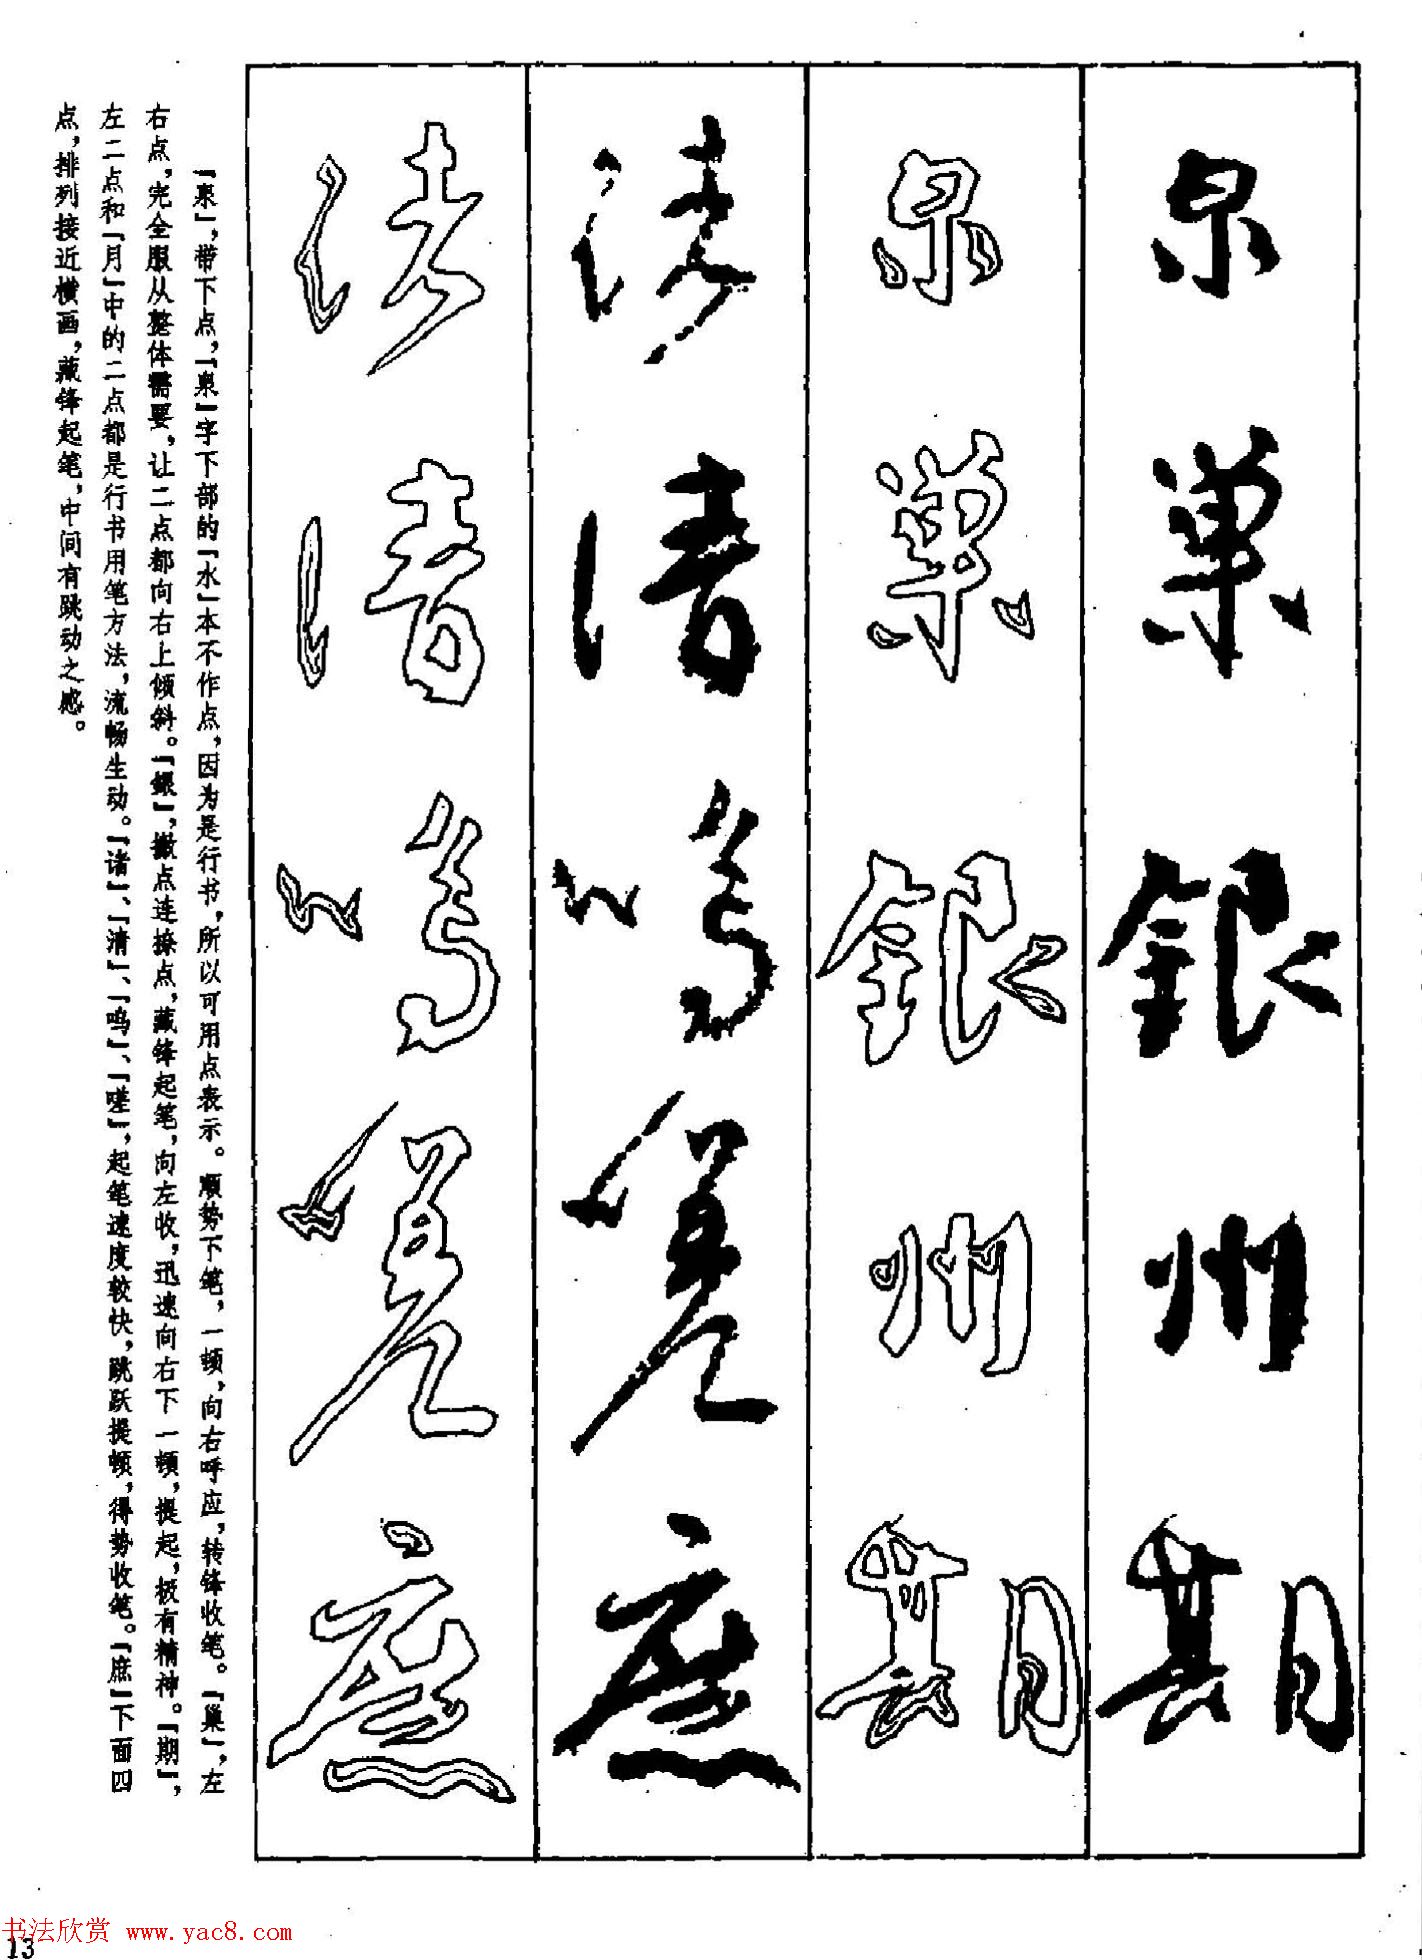 泉巢銀州期
泉巢銀州期
諸清嗚嗟庶
諸清嗚嗟庶
「泉」，带下点，「泉」字下部的「水」本不作点，因为是行书，所以可用点表示。顺势下笔，一顿，向右呼应，转锋收笔。「巢」，左
右点，完全服从整体需要，让二点都向右上倾斜。「銀」，撇点连捺点，藏锋起笔，向左收，迅速向右下一顿，提起，极有精神。「期」，
左二点和「月」中的二点都是行书用笔方法，流畅生动。「诸」、「清」、「呜」、「嗟」，起笔速度较快，跳跃提顿，得势收笔。「庶」下面四
点，排列接近横画，藏锋起笔，中间有跳动之感。
书法欣赏 www.yac8.com
13